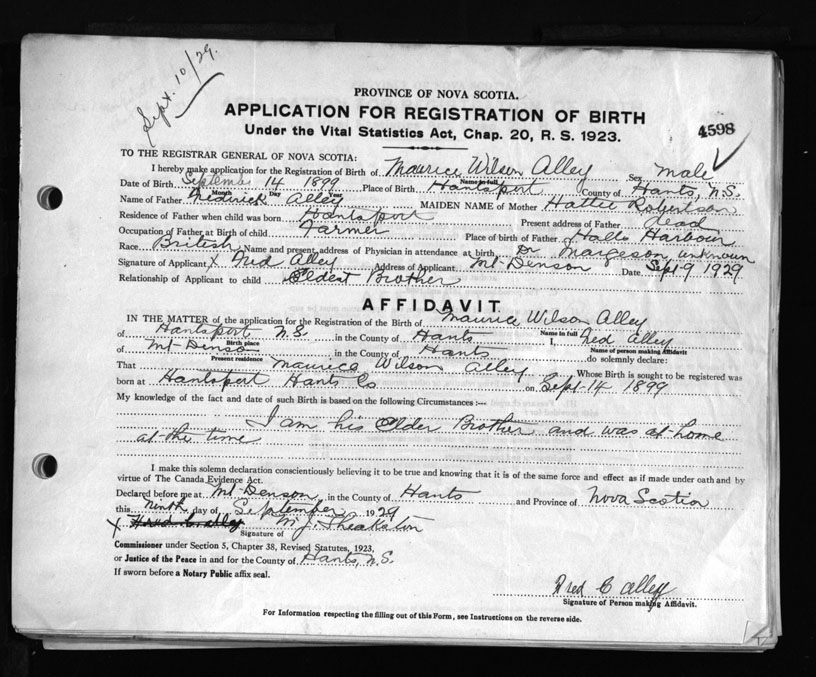 Sept. 10/29.
PROVINCE OF NOVA SCOTIA.
APPLICATION FOR REGISTRATION OF BIRTH
Under the Vital Statistics Act, Chap. 20, R. S. 1923.
4598
TO THE REGISTRAR GENERAL OF NOVA SCOTIA:
I hereby make application for the Registration of Birth of Maurice Wilson Alley Sex male
Name in full
Date of Birth September 14 1899 Place of Birth Hantsport County of Hants, N.S.
Month Day
Name of Father Frederick Alley MAIDEN NAME of Mother Hattie Robertson
Residence of Father when child was born Hantsport Present address of Father dead
Occupation of Father at Birth of child Farmer Place of Birth of Father Halls Harbour
Race British Name and present address of Physician in attendance at birth Dr Margeson unknown
Signature of Applicant X Fred Alley Address of Applicant Mt Denson Date Sept 9 1929
Relationship of Applicant to child Oldest Brother
AFFIDAVIT
IN THE MATTER of the application for the Registration of the Birth of Maurice Wilson Alley
Name in full
of Hantsport N.S. in the County of Hants I, Fred Alley
Birth place Name of person making Affidavit
of Mt Denson in the County of Hants do solemnly declare:
Present residence
That Maurice Wilson Alley Whose Birth is sought to be registered was
born at Hantsport Hants Co on Sept 14 1899
My knowledge of the fact and date of such Birth is based on the following Circumstances :—
I am his Older Brother and was at home
at the time
I make this solemn declaration conscientiously believing it to be true and knowing that it is of the same force and effect as if made under oath and by
virtue of The Canada Evidence Act.
Declared before me at Mt Denson, in the County of Hants and Province of Nova Scotia
this Ninth day of September 1929
X Fred C Alley M. J. Sheakston
Signature of
Commissioner under Section 5, Chapter 38, Revised Statutes, 1923,
or Justice of the Peace in and for the County of Hants, N.S.
If sworn before a Notary Public affix seal.
Fred C Alley
Signature of Person making Affidavit.
For Information respecting the filling out of this Form, see Instructions on the reverse side.